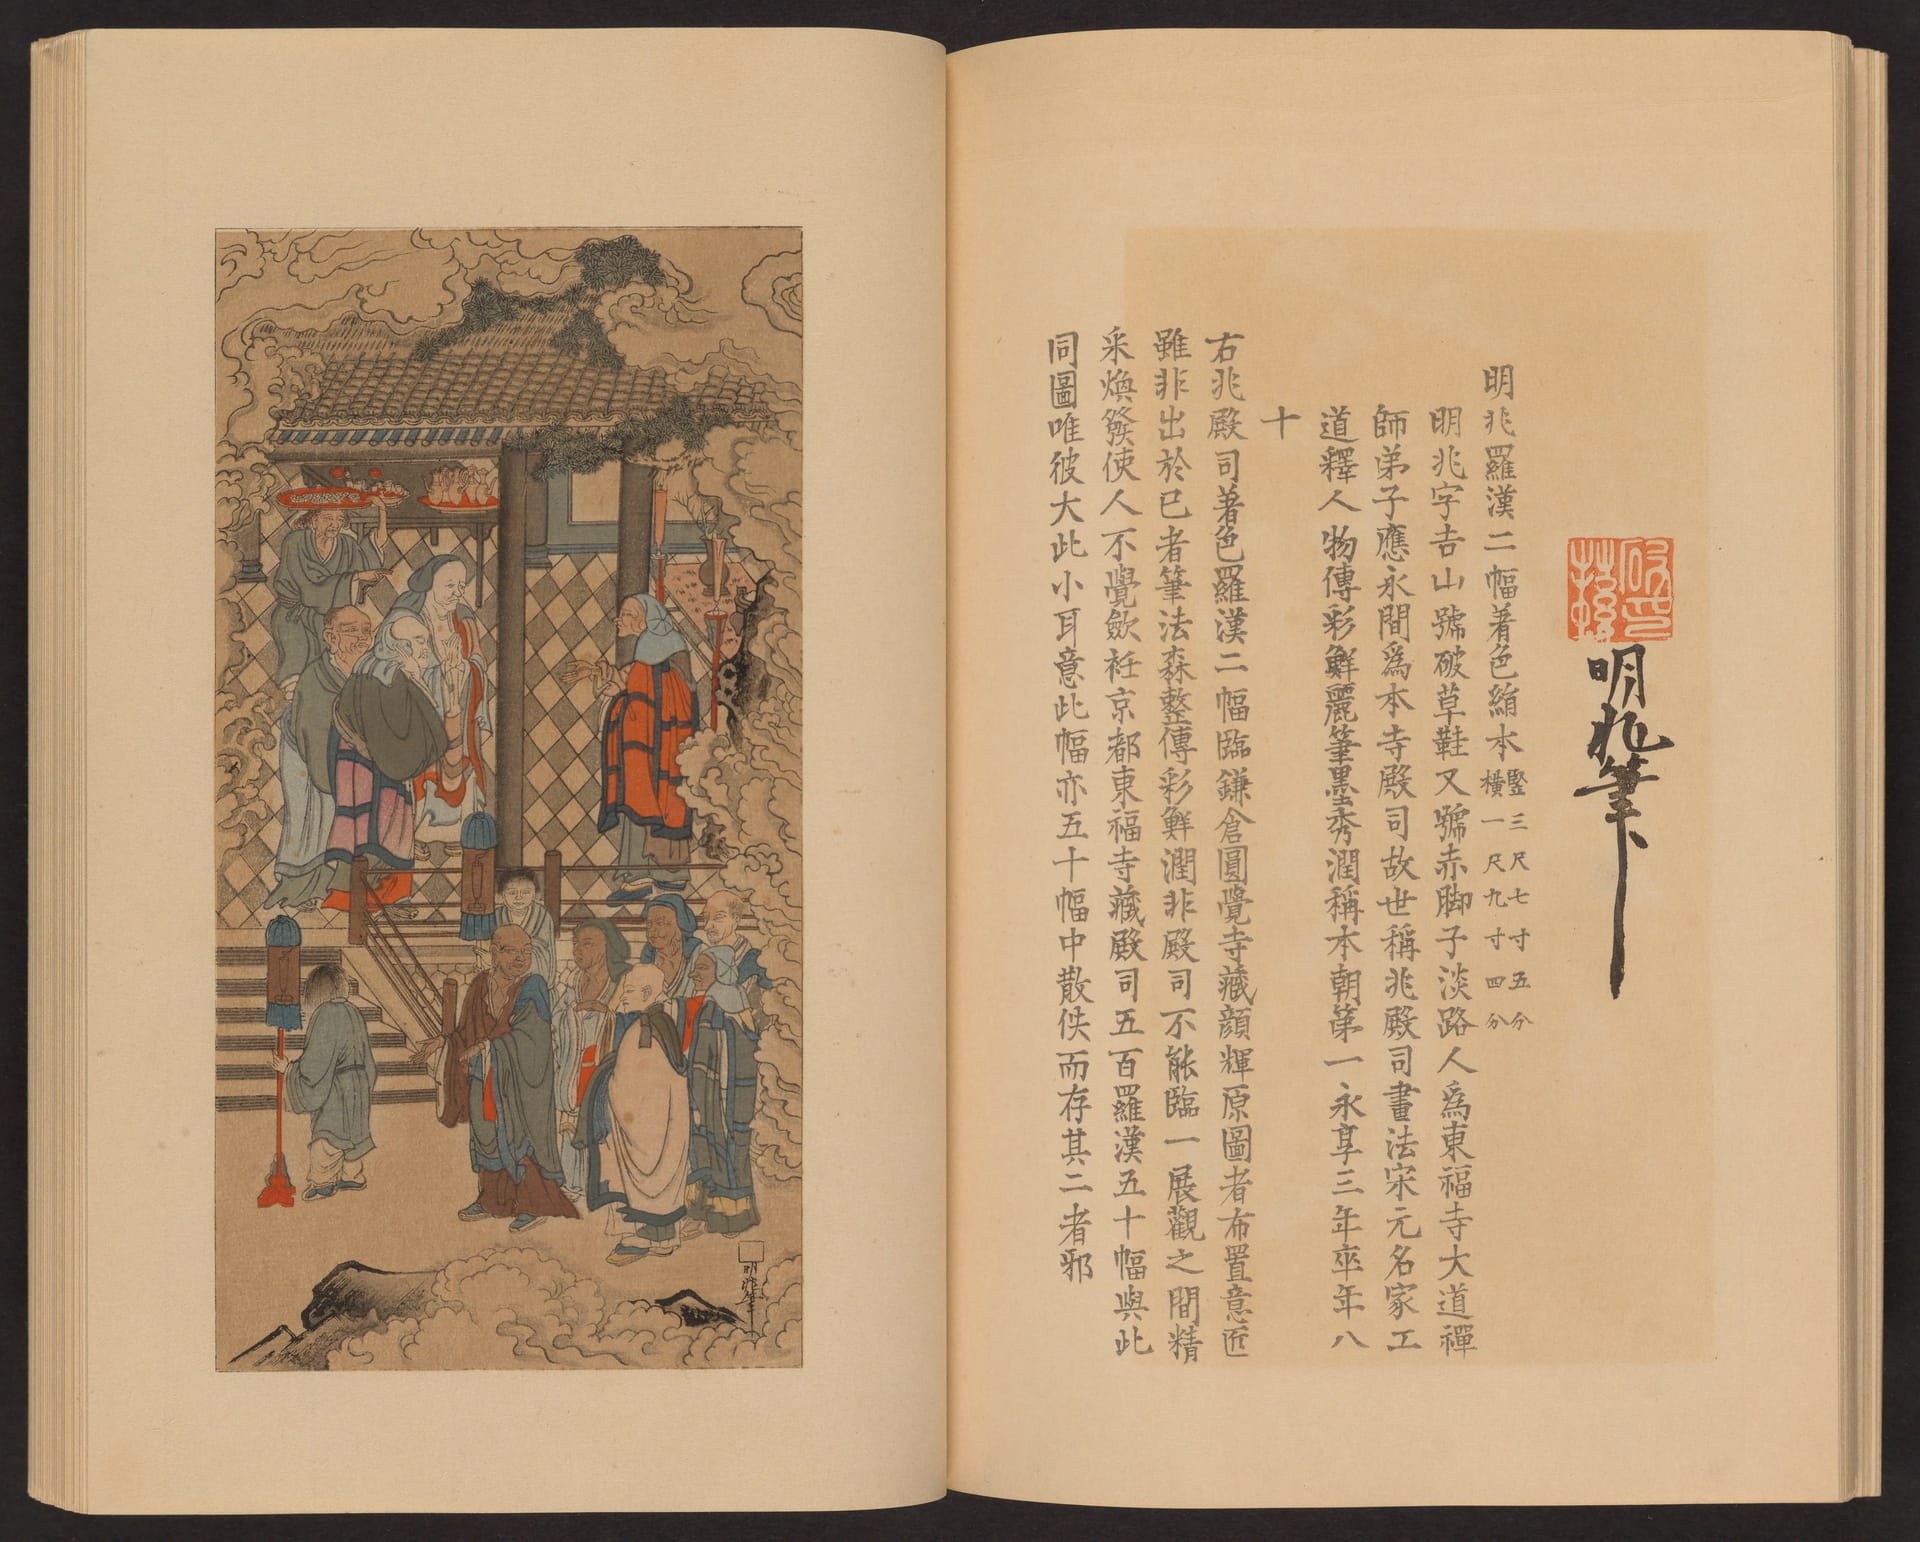 明兆筆
明兆羅漢二幅著色絹本竪三尺七寸五分
橫一尺九寸四分
明兆字吉山號破草鞋又號赤脚子淡路人爲東福寺大道禪
師弟子應永間爲本寺殿司故世稱兆殿司畫法宋元名家工
道釋人物傳彩鮮麗筆墨秀潤稱本朝第一永享三年卒年八
十
右兆殿司著色羅漢二幅臨鎌倉圓覺寺藏顔輝原圖者布置意匠
雖非出於已者筆法森整傳彩鮮潤非殿司不能臨一展觀之間精
采煥發使人不覺歛衽京都東福寺藏殿司五百羅漢五十幅與此
同圖唯彼大此小耳意此幅亦五十幅中散佚而存其二者邪
明兆筆